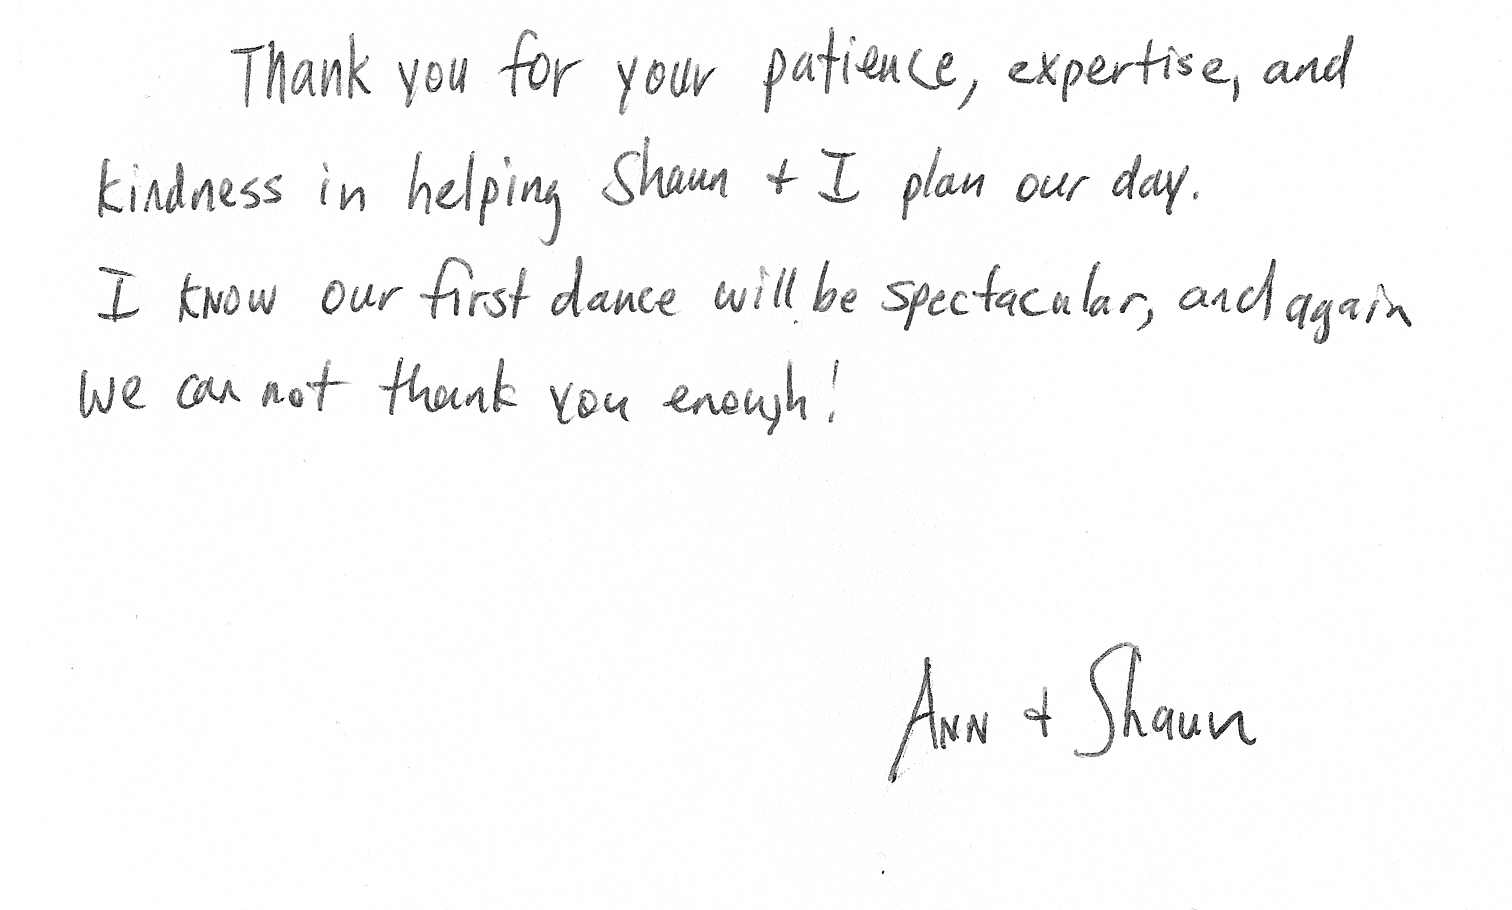 Thank you for your patience, expertise, and
kindness in helping Shaun + I plan our day.
I know our first dance will be spectacular, and again
we can not thank you enough!
Ann + Shaun